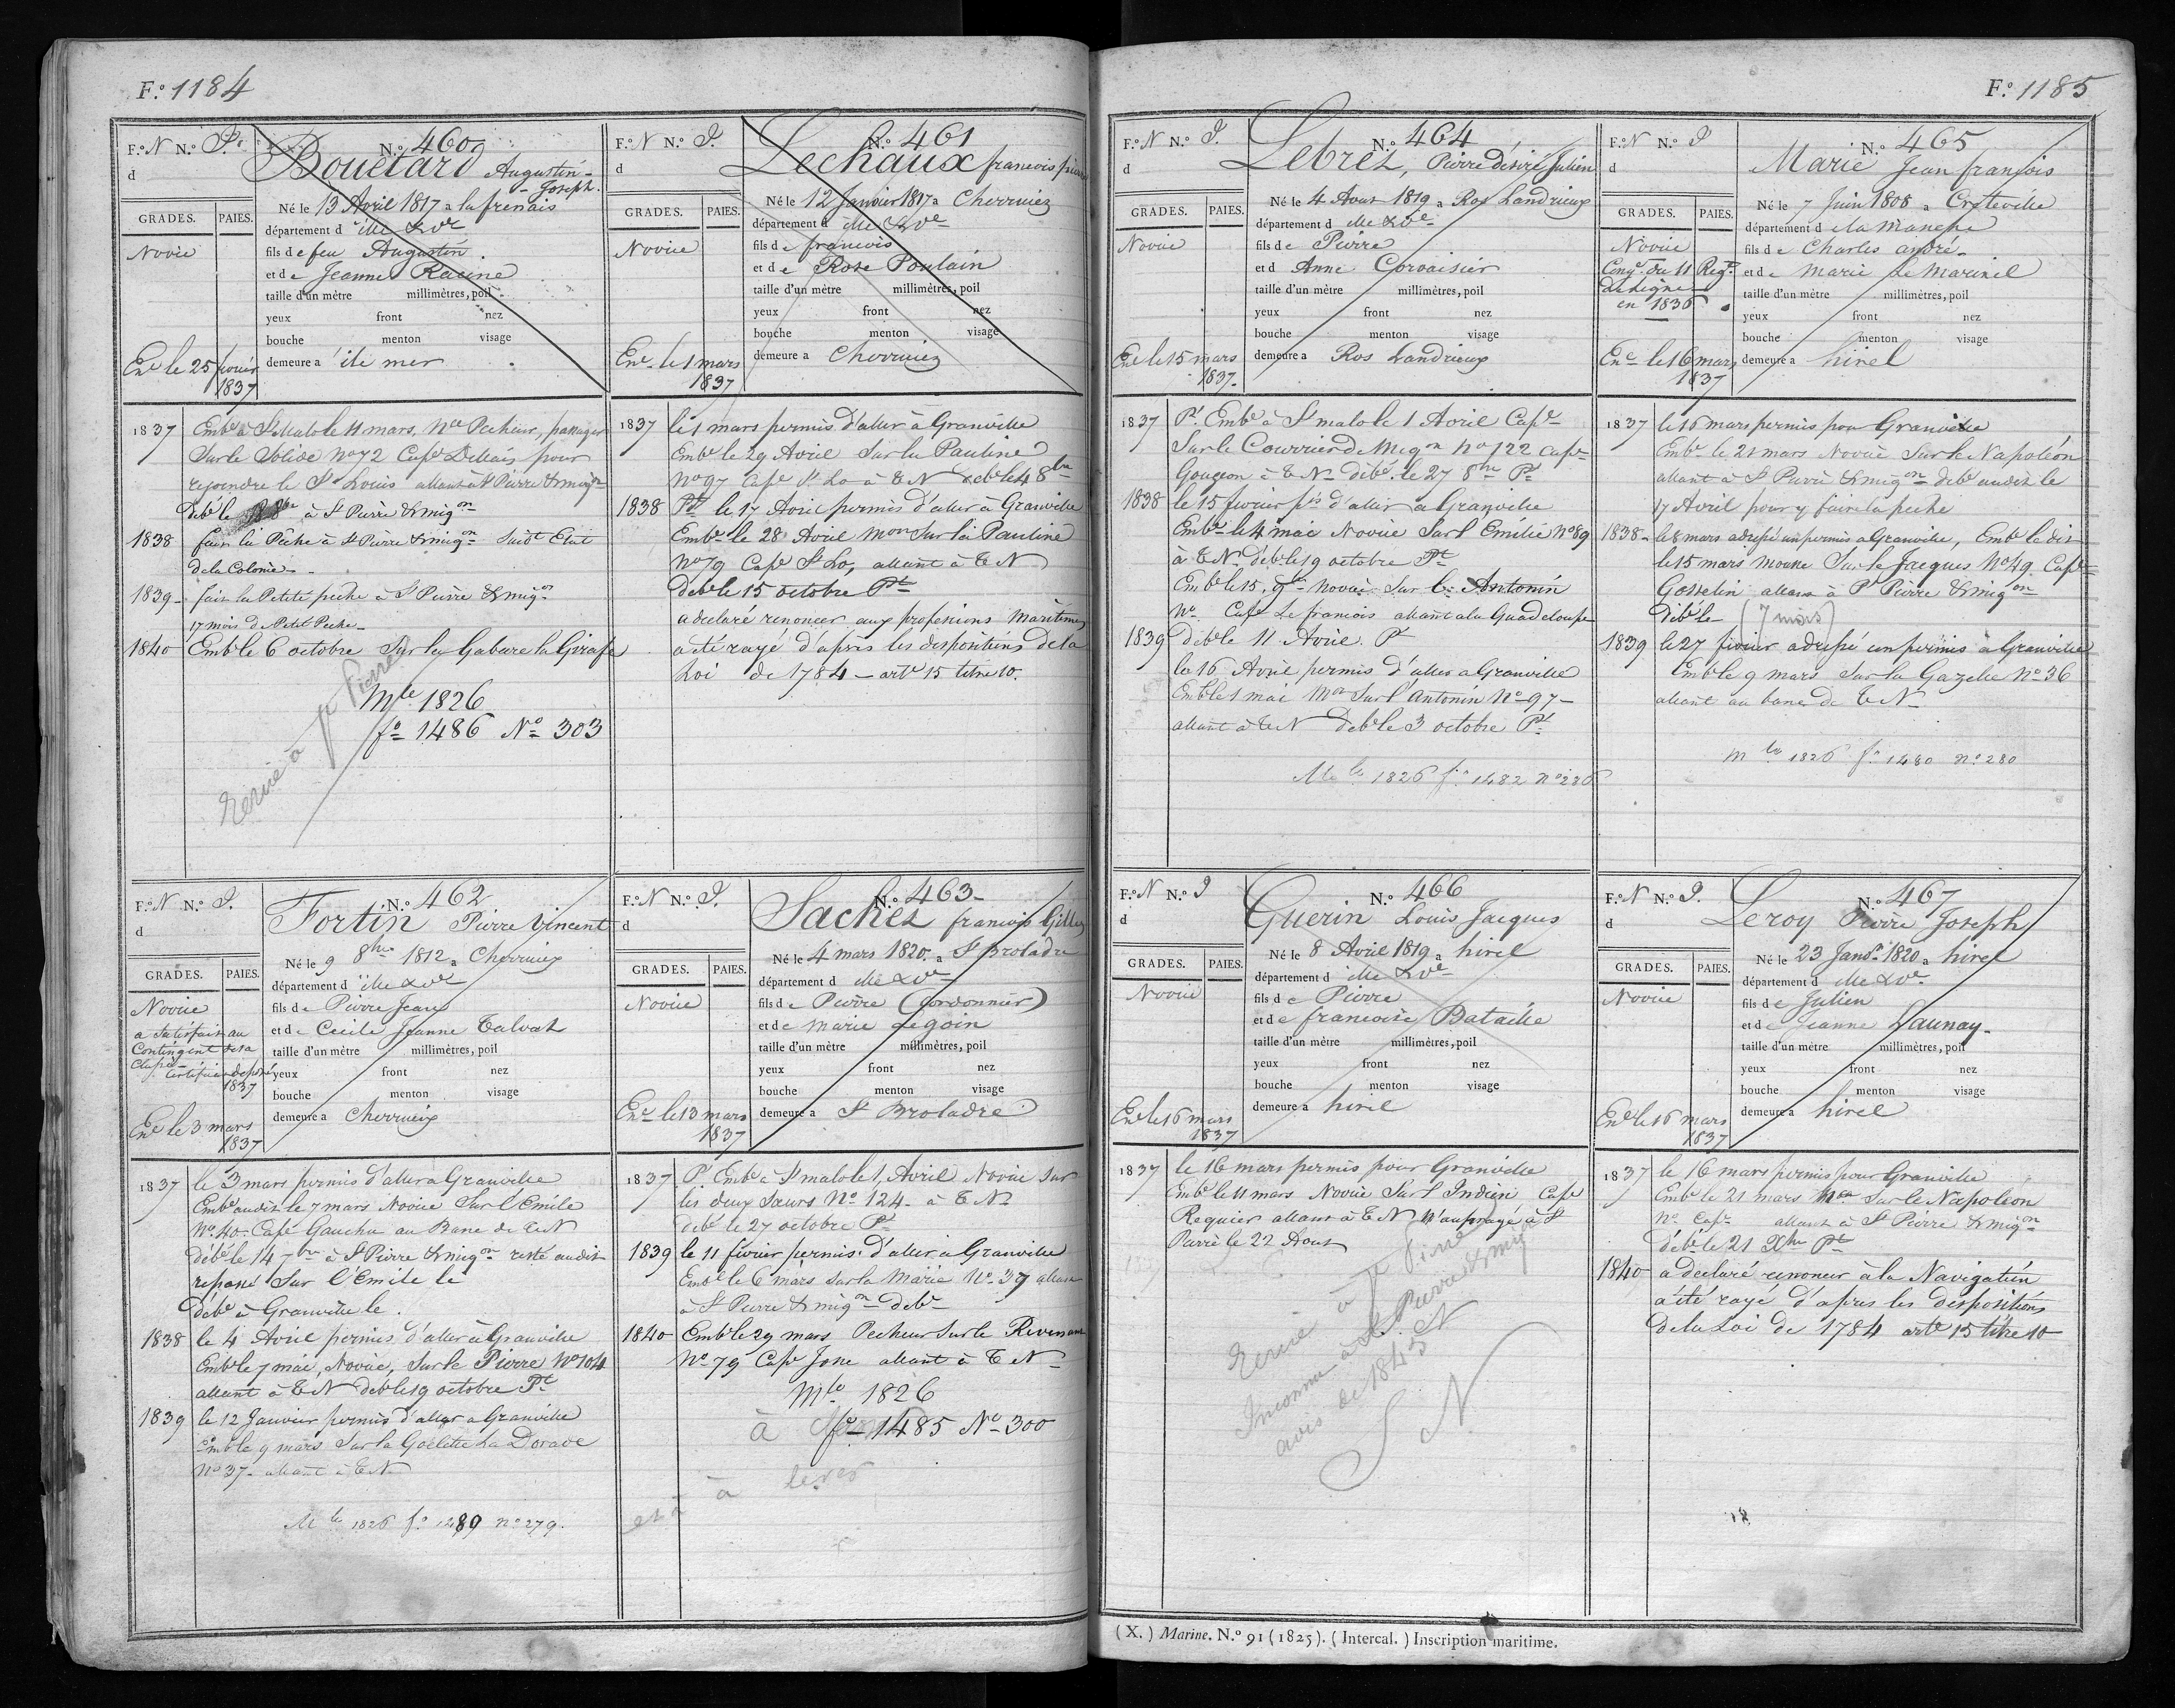 F.o 1184
F.o N N.o P.
N.o 460
Bouétard Augustin
Joseph.
d
GRADES. PAIES.
Né le 13 Avril 1817 a la frenais
département d ille & Vne
Novice
fils de feu Augustin
et de Jeanne Racine
taille d'un mètre millimètres, poil
yeux front nez
bouche menton visage
Ené le 25 fevrier
1837
demeure a ile mer
1837 Embé à St Malo le 11 mars, Pecheur, passager
Sur le Solide No 72 Cape Dellais pour
rejoindre le St Louis allant à St Pierre & migon
débé le à St Pierre & migon
1838 fair la Pêche à St Pierre & migon Suidt Etat
de la Colonie
1839 fair la Petite peche à St Pierre & migon
17 mois de Petit Peche
1840 Embé le 6 octobre Sur la Gabare la Girafe
Mle 1826
fo 1486 No 303
F.o N N.o P.
N.o 461
Lechaux francois
d
GRADES. PAIES.
Né le 12 Janvier 1817 a Cherrueix
département d ille & Vne
Novice
fils de francois
et de Rose Poulain
taille d'un mètre millimètres, poil
yeux front nez
bouche menton visage
Ené le 1 mars
1837
demeure a Cherrueix
1837 le 1 mars permis d'aller à Granville
Embé le 29 Avril Sur la Pauline
No 97 Cape St Lo à T N debé le 4 8bre
1838 Pt le 17 Avril permis d'aller à Granville
Embé le 28 Avril Mon Sur la Pauline
No 79 Cape St Lo, allant à T N
debé le 15 octobre Pt
a declaré renoncer aux professions maritimes
a été rayé d'après les dispositions de la
Loi de 1784 – arte 15 titre 10.
F.o N N.o P.
N.o 462
Fortin Pierre Vincent
d
GRADES. PAIES.
Né le 9 8bre 1812 a Cherrueix
département d ille & Vne
Novice
fils de Pierre Jean
a Satisfait au
Contingent de sa
Classe
Certificat déposé
1837
et de Cecile Jeanne Talvat
taille d'un mètre millimètres, poil
yeux front nez
bouche menton visage
Ené le 3 mars
1837
demeure a Cherrueix
1837 le 3 mars permis d'aller a Granville
Embé audit le 7 mars Novice Sur l'Emile
No 40 Cape Gauchu au Banc de T N
débé le 14 7bre à St Pierre & migon resté audit
repassé Sur l'Emile le
débé à Granville le
1838 le 4 Avril permis d'aller à Granville
Embé le 7 mai, Novice, Sur le Pierre No 104
allant à T N débé le 19 octobre Pt
1839 le 12 Janvier permis d'aller a Granville
Embé le 9 mars Sur la Goëlette La Dorade
No 37 allant à T N
Mle 1826 fo 1489 no 279.
F.o N N.o P.
N.o 463
Sachet francois Gilles
d
GRADES. PAIES.
Né le 4 mars 1820 a St Broladre
département d ille & Vne
Novice
fils de Pierre (Cordonnier)
et de Marie Legoin
taille d'un mètre millimètres, poil
yeux front nez
bouche menton visage
Ené le 13 mars
1837
demeure a St Broladre
1837 Pt Embé à St malo le 1, Avril Novice Sur
les deux Sœurs No 124 à T N
debé le 27 octobre Pt
1839 le 11 fevrier permis d'aller a Granville
Embé le 6 mars Sur la Marie No 39 allant
à St Pierre & migon debé
1840 Embé le 29 mars Pecheur Sur le Revenant
No 79 Cape Jone allant à T N
Mle 1826
fo 1485 No 300
à lever
F.o 1185
F.o N N.o P
N.o 464
Lebret, Pierre désiré Julien
d
GRADES. PAIES.
Né le 4 Aout 1819 a Ros Landrieux
département d ille & Vne
Novice
fils de Pierre
et d Anne Corvaisier
taille d'un mètre millimètres, poil
yeux front nez
bouche menton visage
Ené le 15 mars
1837
demeure a Ros Landrieux
1837 Pt Embé à St malo le 1 Avril Cape
Sur le Courrier de Migon No 122 Cape
Gougeon à T N débé le 27 8bre Pt
1838 le 15 fevrier pis d'aller a Granville
Embé le 4 mai Novice Sur l'Emélie No 89
à T N débé le 19 octobre Pt
Embé le 15. 9bre Novice Sur l'Antonin
No Cape Le francois allant a la Guadeloupe
1839 débé le 11 Avril Pt
le 16 Avril permis d'aller a Granville
Embé le 1 mai Mon Sur l'Antonin No 97
allant à T N debé le 3 octobre Pt
Mle 1826 fo 1482 no 286
F.o N N.o P
N.o 465
Marie Jean françois
d
GRADES. PAIES.
Né le 7 Juin 1808 a Creteville
département d la Manche
Novice
fils de Charles andré
Congé du 11 Regt
de Ligne
en 1836
et de Marie Le Marinel
taille d'un mètre millimètres, poil
yeux front nez
bouche menton visage
Ené le 16 mars
1837
demeure a hirel
1837 le 16 mars permis pour Granville
Embé le 21 mars Novice Sur le Napoléon
allant à St Pierre & migon debé audit le
17 Avril pour y faire la peche
1838 le 8 mars adressé un permis a Granville, Embé ledit
le 15 mars Sur le Jacques No 49 Cape
Gosselin allant à St Pierre & migon
débé le (7 mois)
1839 le 27 fevrier adressé un permis à Granville
Embé le 9 mars Sur la Gazelle No 36
allant au banc de T N
mle 1826 fo 1480 no 280
F.o N N.o P
N.o 466
Guerin Louis Jacques
d
GRADES. PAIES.
Né le 8 Avril 1819 a hirel
département d ille & Vne
Novice
fils de Pierre
et de francoise Bataille
taille d'un mètre millimètres, poil
yeux front nez
bouche menton visage
Ené le 16 mars
1837
demeure a hirel
1837 le 16 mars permis pour Granville
Embé le 11 mars Novice Sur l'Indien Cape
Requier allant à T N Naufragé à St
Pierre le 22 Aout
Inconnu à St Pierre & mig
avis de 1845
S N
F.o N N.o P.
N.o 467
Leroy Pierre Joseph
d
GRADES. PAIES.
Né le 23 Janr 1820 a hirel
département d ille & Vne
Novice
fils de Julien
et de Jeanne Launay
taille d'un mètre millimètres, poil
yeux front nez
bouche menton visage
Ené le 16 mars
1837
demeure a hirel
1837 le 16 mars permis pour Granville
Embé le 21 mars Sur le Napoleon
No Cape allant à St Pierre & migon
débé le 21 Xbre Pt
1840 a declaré renoncer à la Navigation
a été rayé d'apres les dispositions
de la Loi de 1784 arte 15 titre 10
(X.) Marine. N.o 91 (1825). (Intercal.) Inscription maritime.